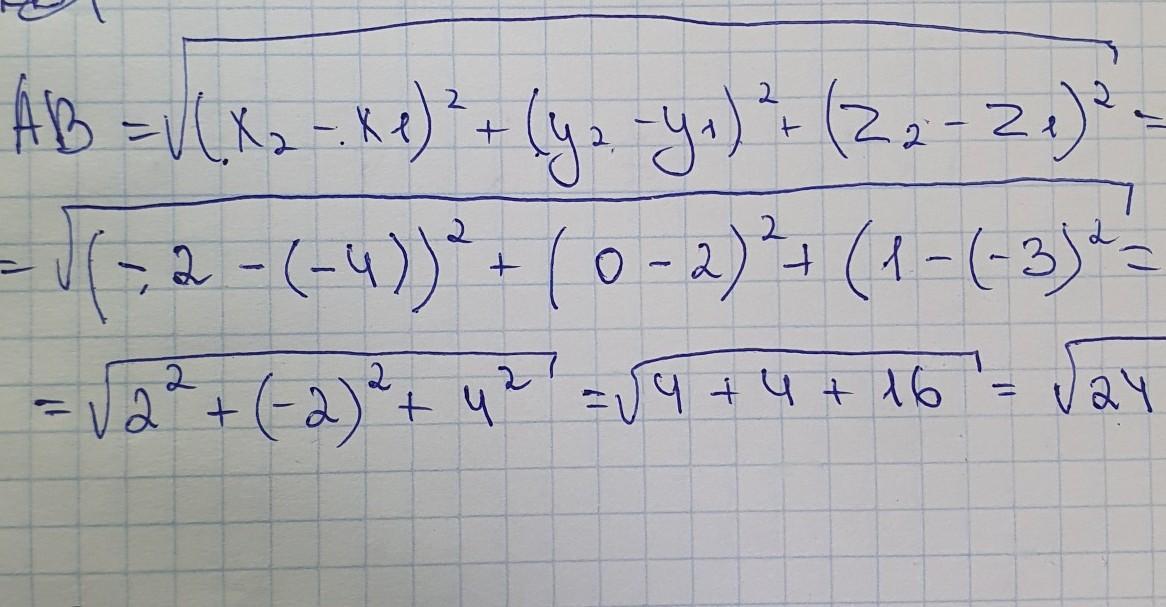 AB = √(x₂ - x₁)² + (y₂ - y₁)² + (z₂ - z₁)² =
= √(-2 - (-4))² + (0 - 2)² + (1 - (-3)² =
= √2² + (-2)² + 4² = √4 + 4 + 16 = √24